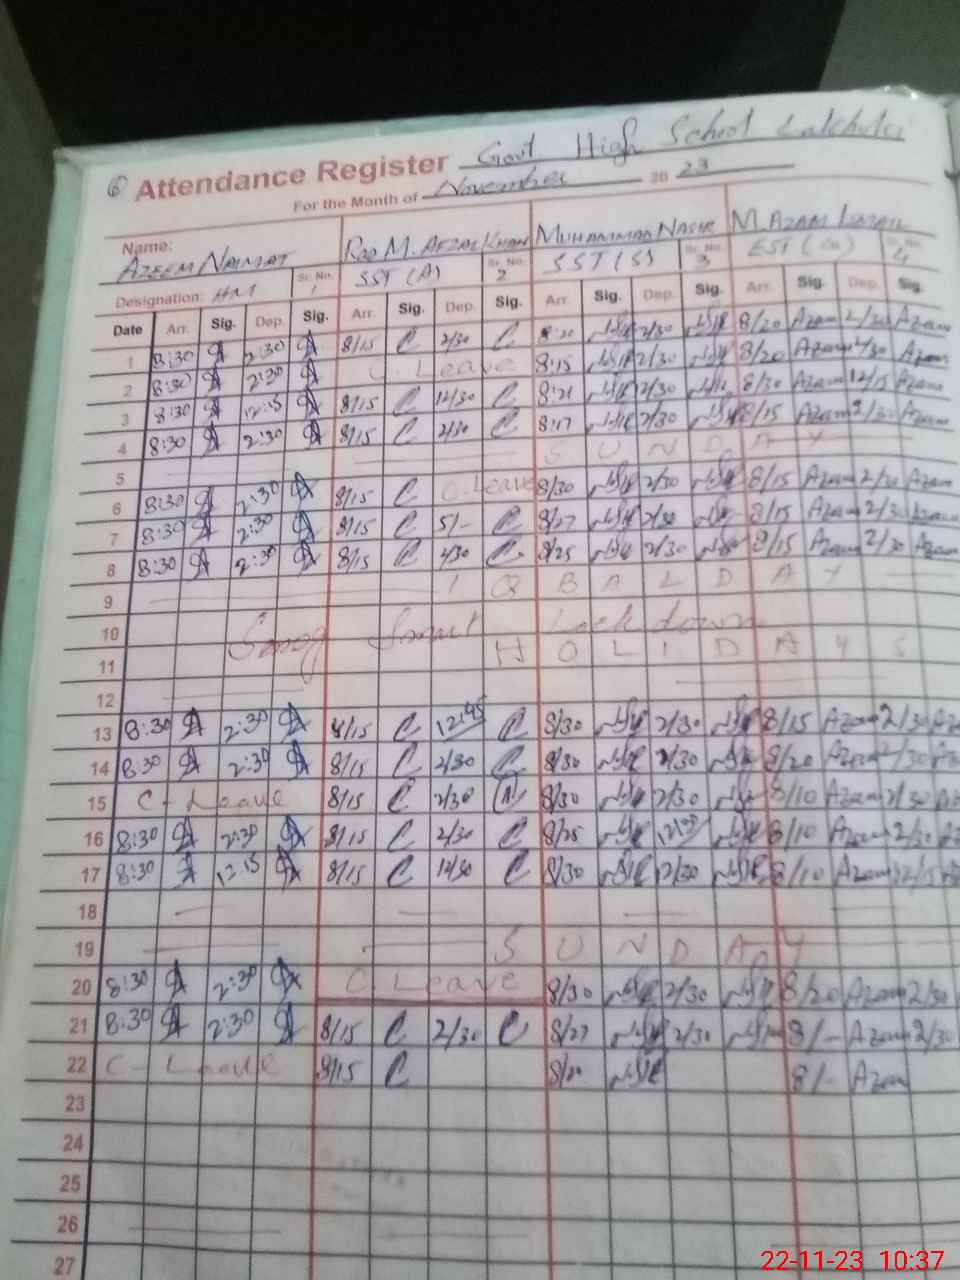 6 Attendance Register Govt High School
For the Month of November 20 23
Name: AZEEM NAIMAT RAO M. AFZAL KHAN MUHAMMAD NASIR M. AZAM
Designation: HM Sr. No. 1 SST (A) Sr. No. 2 SST (S) Sr. No. 3 EST Sr. No. 4
Date Arr. Sig. Dep. Sig. Arr. Sig. Dep. Sig. Arr. Sig. Dep. Sig. Arr. Sig. Dep. Sig.
1 8:30 2:30 8/15 C 2/30 C 8:20 2/30 8/20 Azam 2/30 Azam
2 8:30 2:30 C. Leave 8:15 2/30 8/20 Azam 2/30 Azam
3 8:30 12:15 8/15 C 12/30 C 8:21 2/30 8/30 Azam 12/15 Azam
4 8:30 2:30 8/15 C 2/30 C 8:17 2/30 8/15 Azam 2/30 Azam
5 SUNDAY
6 8:30 2:30 8/15 C C. Leave 8/30 2/30 8/15 Azam 2/30 Azam
7 8:30 2:30 8/15 C 5/- C 8/27 2/30 8/15 Azam 2/30 Azam
8 8:30 2:30 8/15 C 2/30 C 8/25 2/30 8/15 Azam 2/30 Azam
9 IQBAL DAY
10 Smog Smart Lockdown
11 HOLIDAYS
12
13 8:30 2:30 8/15 C 12:45 C 8/30 2/30 8/15 Azam 2/30
14 8:30 2:30 8/15 C 2/30 C 8/30 2/30 8/20 Azam 2/30
15 C-Leave 8/15 C 2/30 8/30 2/30 8/10 Azam 2/30
16 8:30 2:30 8/15 C 2/30 C 8/25 12/30 8/10 Azam 2/30
17 8:30 12:15 8/15 C 12/30 C 8/30 12/30 8/10 Azam 12/15
18
19 SUNDAY
20 8:30 2:30 C Leave 8/30 2/30 8/20 Azam 2/30
21 8:30 2:30 8/15 C 2/30 C 8/27 2/30 8/- Azam 2/30
22 C-Leave 8/15 C 8/- Azam
23
24
25
26
27
22-11-23 10:37